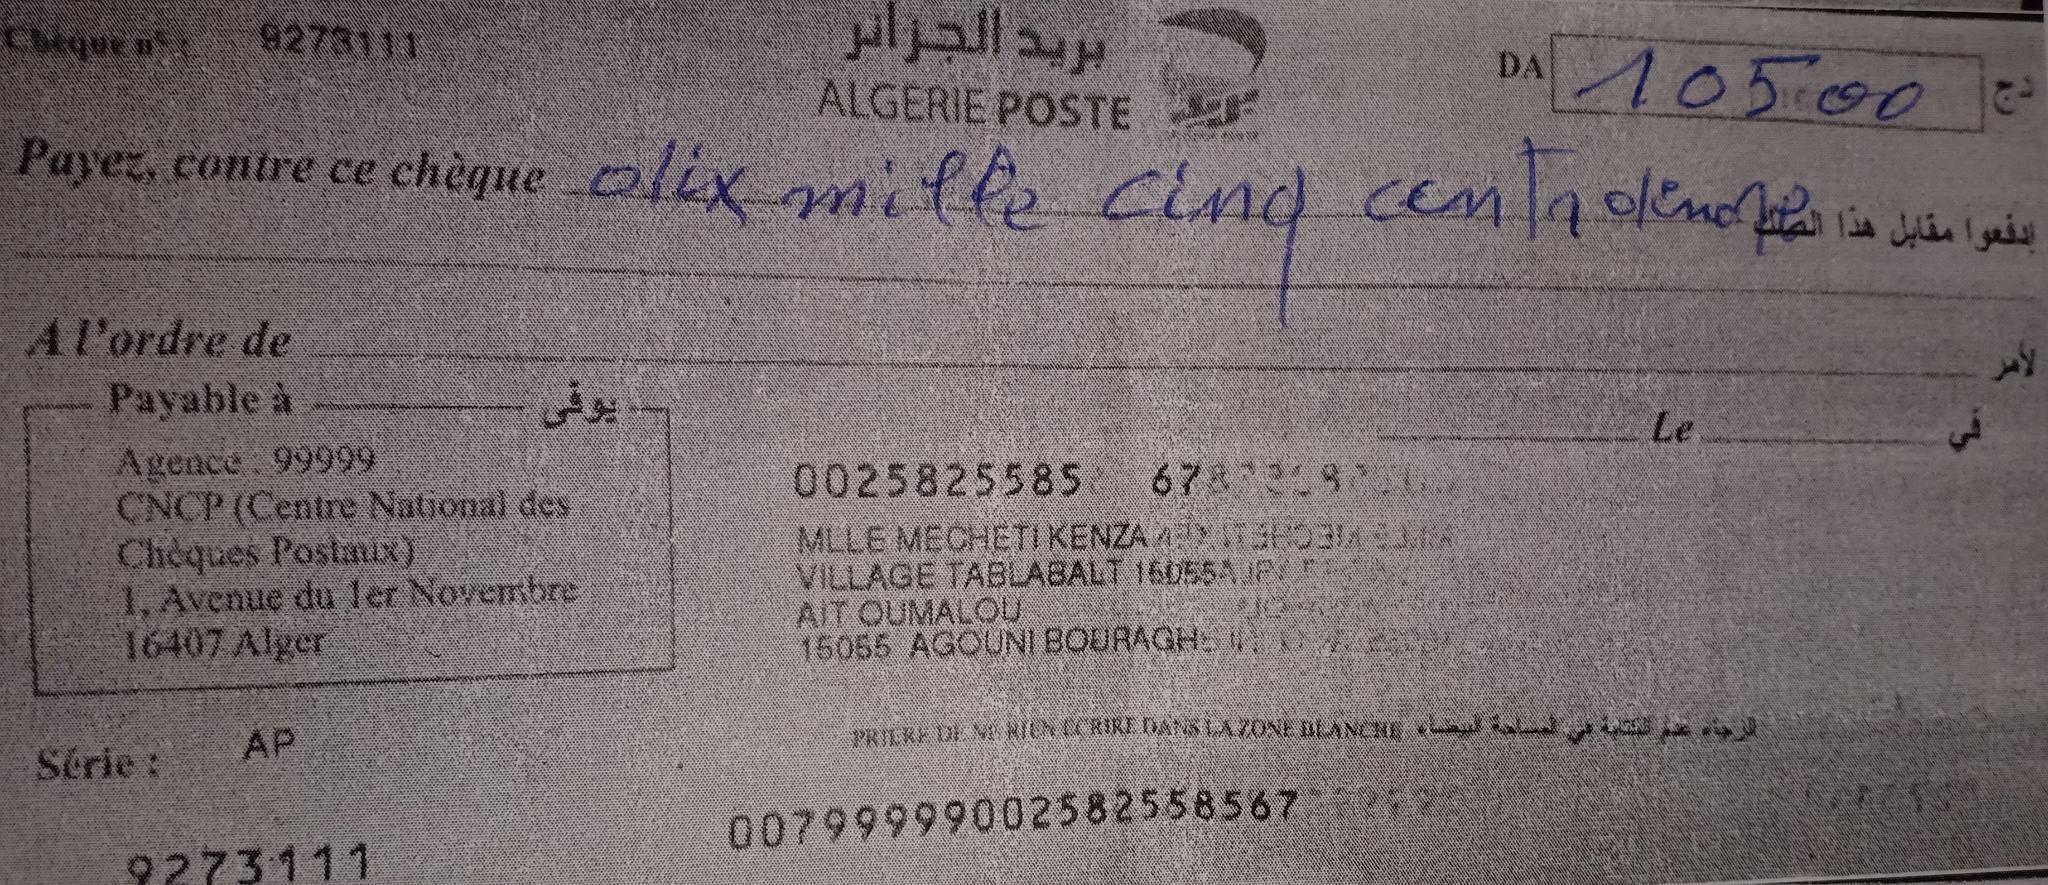 Chèque n° : 9273111
بريد الجزائر
ALGERIE POSTE
DA 10500 دج
Payez, contre ce chèque dix mille cinq cent dinars إدفعوا مقابل هذا الصك
A l'ordre de لأمر
Payable à يوفى
Le في
Agence : 99999
CNCP (Centre National des
Chèques Postaux)
1, Avenue du 1er Novembre
16407 Alger
0025825585 67
MLLE MECHETI KENZA
VILLAGE TABLABALT 15055
AIT OUMALOU
15055 AGOUNI BOURAGH
Série : AP
PRIERE DE NE RIEN ECRIRE DANS LA ZONE BLANCHE الرجاء عدم الكتابة في المساحة البيضاء
9273111
00799999002582558567